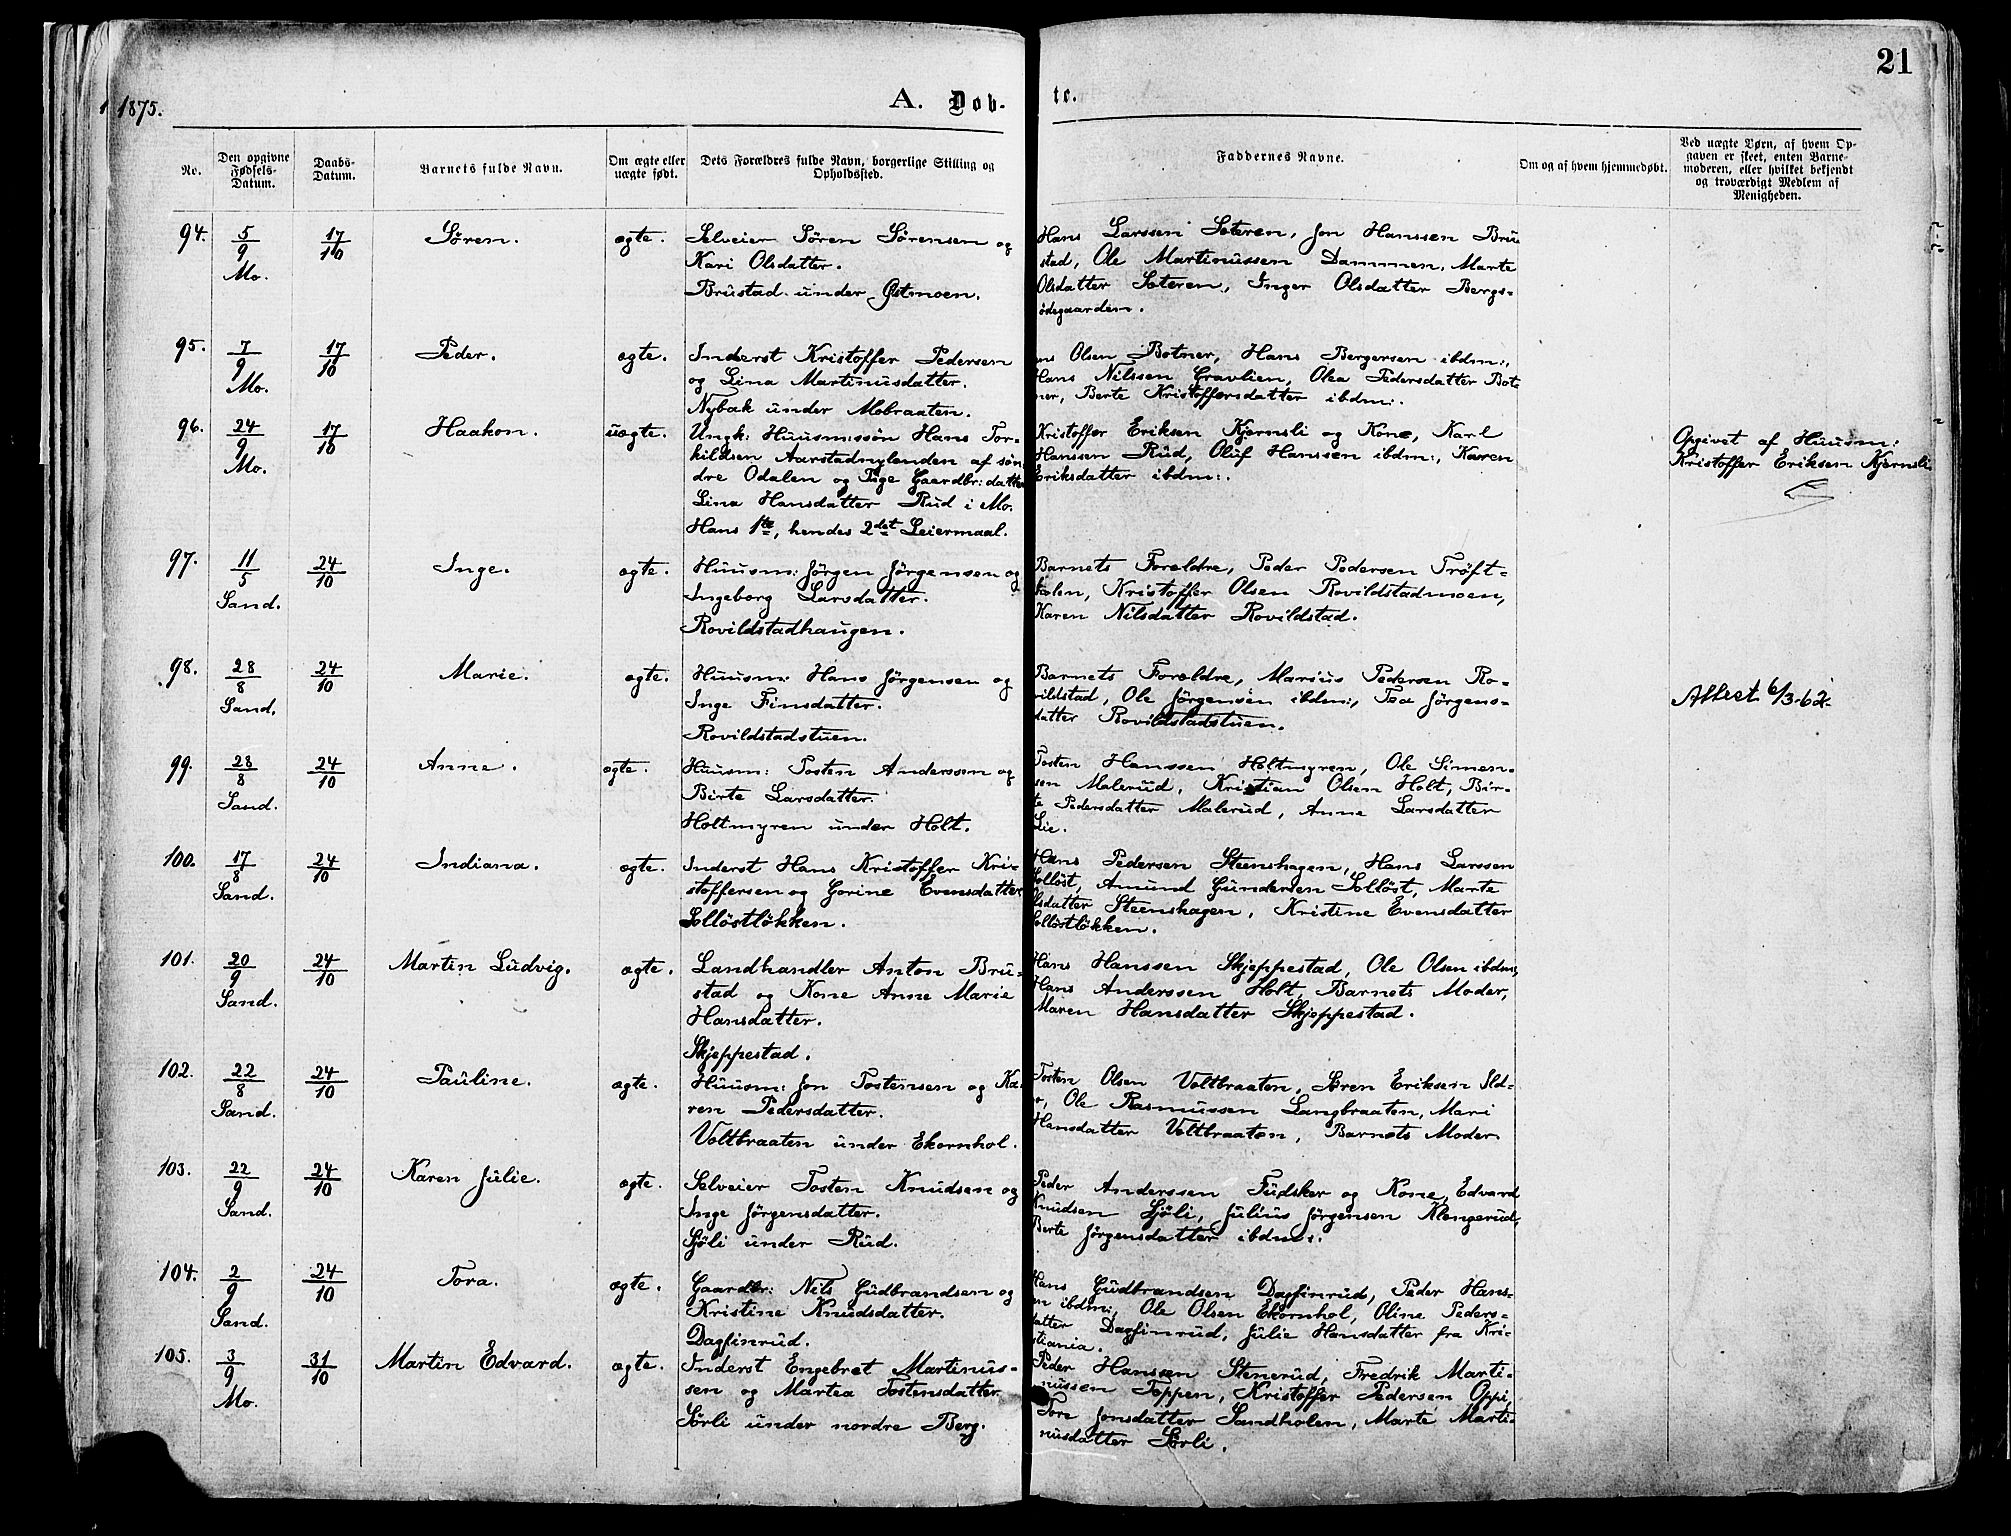 21
1875.
A. Døb-
te.
No.
Den opgivne
Fødsels-
Datum.
Daabs-
Datum.
Barnets fulde Navn.
Om ægte eller
uægte født.
Dets Forældres fulde Navn, borgerlige Stilling og
Opholdssted.
Faddernes Navne.
Om og af hvem hjemmedøbt.
Ved uægte Børn, af hvem Op-
gaven er skeet, enten Barne-
moderen, eller hvilket bekjendt
og troværdigt Medlem af
Menigheden.
94.
5/9
Mo.
17/10
Søren.
ægte.
Selveier Søren Sørensen og
Kari Olsdatter.
Brustad under Østmoen.
Hans Larssen Sæteren, Jon Hanssen Bru
stad, Ole Martinussen Dammen, Marte
Olsdatter Sæteren, Inger Olsdatter Bergs-
ødegaarden.
95.
7/9
Mo.
17/10
Peder.
ægte.
Inderst Kristoffer Pedersen
og Lina Martinusdatter.
Nybæk under Mobraaten.
Olsen Botner, Hans Bergersen ibdm:,
Hans Nilssen Gravlien, Olea Pedersdatter Bot
ner, Berte Kristoffersdatter ibdm:.
96.
24/9
Mo.
17/10
Haakon.
uægte.
Ungk: Huusm:søn Hans Tor-
kildsen Aarstadnylenden af søn
dre Odalen og Pige Gaardbr: datter
Lina Hansdatter Rud i Mo.
Hans 1te, hendes 2det Leiermaal.
Kristoffer Eriksen Kjernsli og Kone, Karl
Hanssen Rud, Oluf Hanssen ibdm:, Karen
Eriksdatter ibdm:.
Opgivet af Huusm:
Kristoffer Eriksen Kjernsli
97.
11/5
Sand.
24/10
Inge.
ægte.
Huusm: Jörgen Jörgensen og
Ingeborg Larsdatter.
Rovildstadhaugen.
Barnets Forældre, Peder Pedersen Tröft-
Kristoffer Olsen Rovildstadmoen,
Karen Nilsdatter Rovildstad.
98.
28/8
Sand.
24/10
Marie.
ægte.
Huusm: Hans Jörgensen og
Inge Finsdatter.
Rovildstadstuen.
Barnets Forældre, Marius Pedersen Ro-
vildstad, Ole Jörgensen ibdm:, Jörgens-
datter Rovildstadstuen.
Attest 6/3-62.
99.
28/8
Sand.
24/10
Anne.
ægte.
Huusm: Tosten Anderssen og
Birte Larsdatter.
Holtmyren under Holt.
Tosten Hanssen Holtmyren, Ole Simen-
sen Malerud, Kristian Olsen Holt, Bir-
te Pedersdatter Malerud, Anne Larsdatter
Lie.
100.
17/8
Sand.
24/10
Indiana.
ægte.
Inderst Hans Kristoffer Kri-
stoffersen og Gorine Evensdatter
Solløstløkken.
Hans Pedersen Steenshagen, Hans Larssen
Solløst, Amund Gundersen Solløst, Marte
Olsdatter Steenshagen, Kristine Evensdatter
Solløstløkken.
101.
20/9
Sand.
24/10
Martin Ludvig.
ægte.
Landhandler Anton Bru-
stad og Kone Anne Marie
Hansdatter.
Skjeppestad.
Hans Hanssen Skjeppestad, Ole Olsen ibdm,
Hans Anderssen Holt, Barnets Moder,
Maren Hansdatter Skjeppestad.
102.
22/8
Sand.
24/10
Pauline.
ægte.
Huusm: Jon Tostensen og Ka-
ren Pedersdatter.
Voltbraaten under Ekornhol.
Tosten Olsen Voltbraaten, Søren Eriksen
Ole Rasmussen Langbraaten, Mari
Hansdatter Voltbraaten, Barnets Moder
103.
22/9
Sand.
24/10
Karen Julie.
ægte.
Selveier Tosten Knudsen og
Inge Jörgensdatter.
Sjöli under Rud.
Peder Anderssen Fudsker og Kone, Edvard
Knudsen Sjöli, Julius Jörgensen Klengerud,
Berte Jörgensdatter ibdm:.
104.
2/9
Sand.
24/10
Tora.
ægte.
Gaardbr: Nils Gudbrandsen og
Kristine Knudsdatter.
Dagfinrud.
Hans Gudbrandsen Dagfinrud, Peder Hans-
en ibdm:, Ole Olsen Ekornhol, Oline Peders-
datter Dagfinrud, Julie Hansdatter fra Kri-
stiania.
105.
3/9
Mo.
31/10
Martin Edvard.
ægte.
Inderst Engebret Martinus-
sen og Martea Tostensdatter
Sørli under nordre Berg.
Peder Hanssen Stenerud, Fredrik Marti-
nussen Toppen, Kristoffer Pedersen Oppi,
Tore Jonsdatter Sandholen, Marte Marti-
nusdatter Sørli.